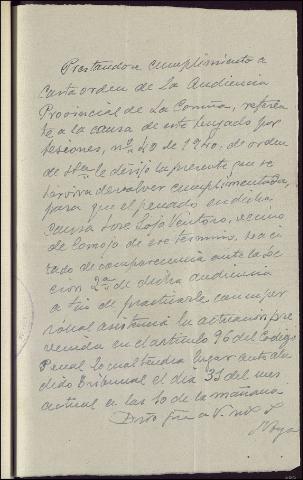 Prestando cumplimiento a
carta orden de la Audiencia
Provincial de La Coruña, referen
te a la causa de este Juzgado por
lesiones, nº 40 de 1940, de orden
de Sª le dirijo la presente que se
servirá devolver cumplimentada,
para que el penado en dicha
causa José Lojo Ventoso, vecino
de de ese termino, sea ci
tado de comparecencia ante la Sec
cion 2ª de dicha audiencia
a fin de practicarle con su per
sonal asistencia la actuación pre
venida en el artículo 96 del Codigo
Penal lo cual tendra lugar ante alu
dido Tribunal el dia 31 del mes
actual a las 10 de la mañana
Dios gue a V. m